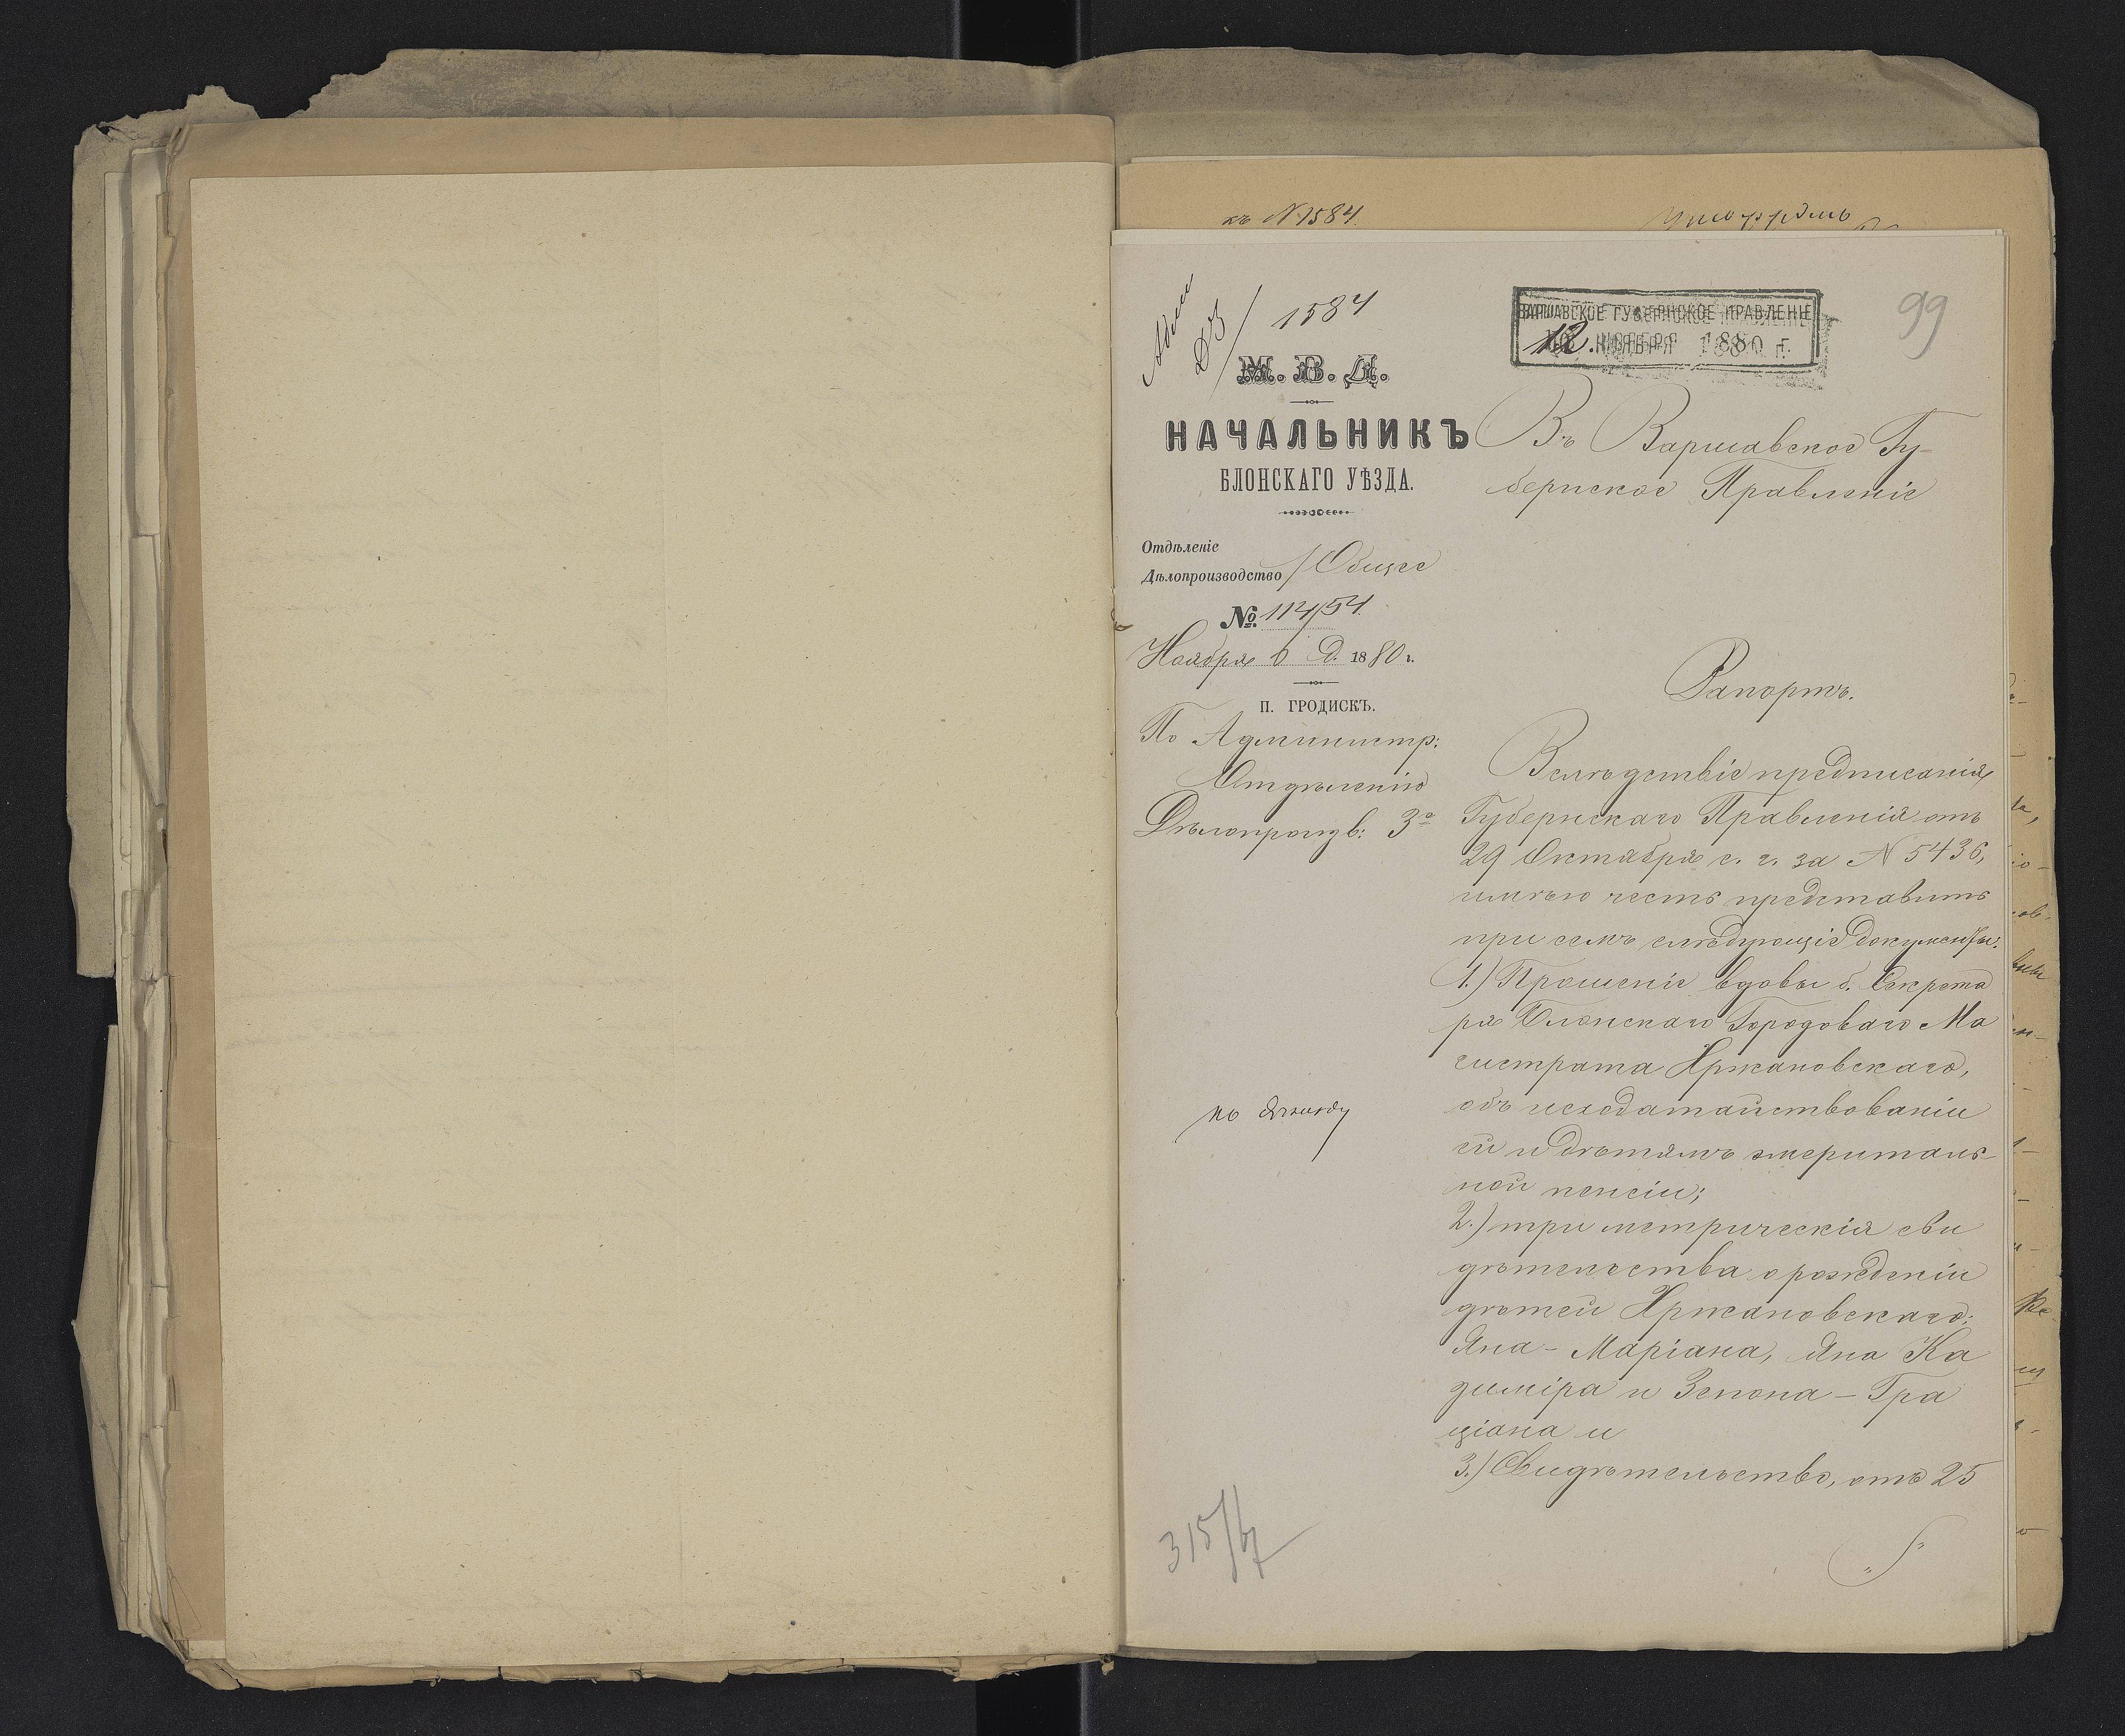 къ №1584.
Адми
Д3/1584
М. В. Д.
НАЧАЛЬНИКЪ
БЛОНСКАГО УѢЗДА.
Отдѣленіе
Дѣлопроизводство / Общее
№ 11454.
Ноября 6 д. 1880 г.
П. ГРОДИСКЪ.
По Администр:
Отдѣленію
Дѣлопроизв: 3º
315/
ВАРШАВСКОЕ ГУБЕРНСКОЕ ПРАВЛЕНІЕ
12. НОЯБРЯ 1880 г.
99
Въ Варшавское Гу-
бернское Правленіе
Рапортъ.
Вслѣдствіе предписанія
Губернскаго Правленія отъ
29 Октября с. г. за N 5436,
имѣю честь представить
при семъ слѣдующіе документы:
1.) Прошеніе вдовы б. Секрета
ря Блонскаго Городоваго Ма
гистрата Хржановскаго,
объ исходатайствованіи
ей и дѣтямъ эмериталь-
ной пенсіи;
2.) три метрическія сви
дѣтельства о рожденіи
дѣтей Хржановскаго:
Яна-Маріана, Яна Ка
зиміра и Зенона-Гра
ціана и
3.) Свидѣтельство, отъ 25